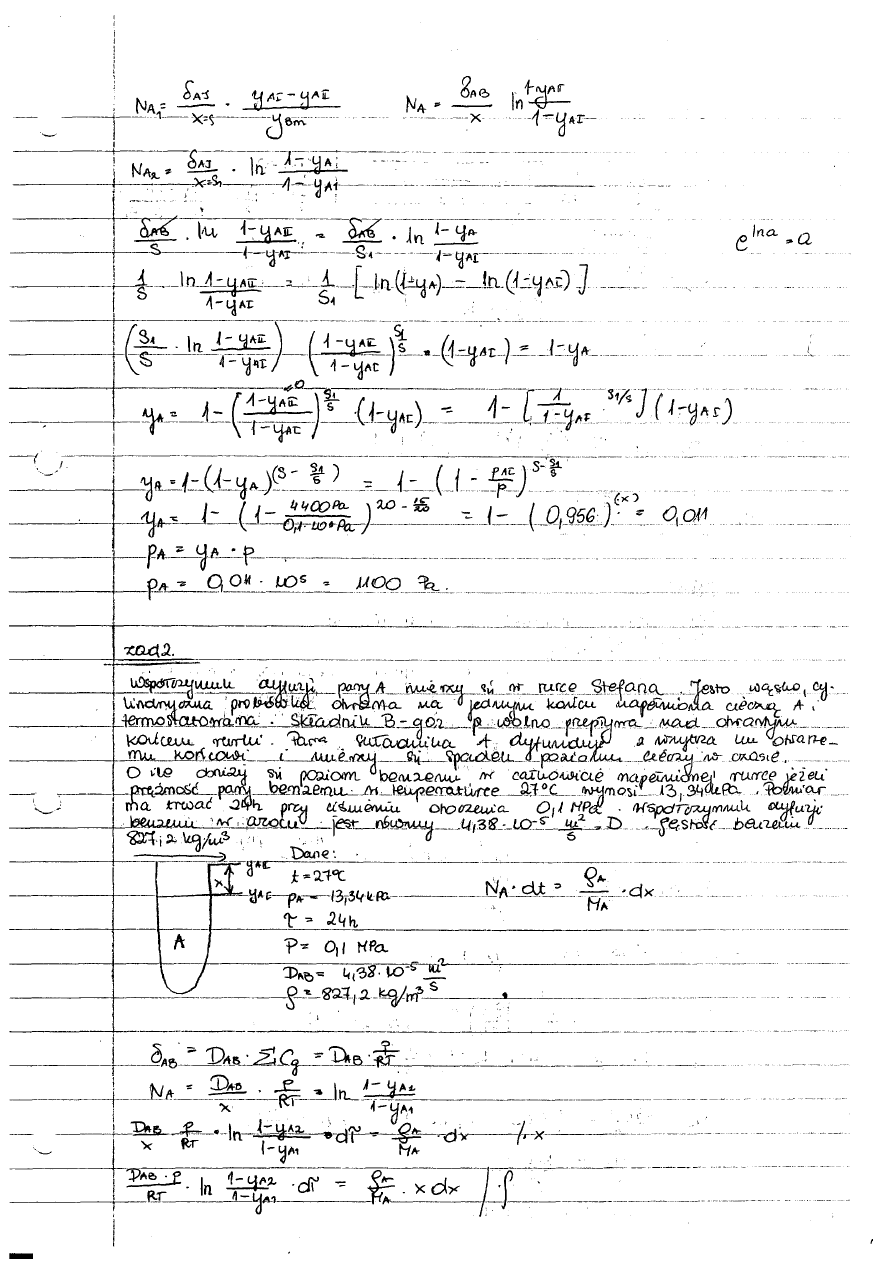 N_A1 = δ_AJ / x=s · (y_AI − y_AII) / y_Bm    N_A = δ_AB / x ln (1−y_AII) / (1−y_AI)
N_A2 = δ_AJ / x=s₁ · ln (1−y_A) / (1−y_AI)
δ_AB / S · ln (1−y_AII) / (1−y_AI) = δ_AB / S₁ · ln (1−y_A) / (1−y_AI)    e^(ln a) = a
1/S ln (1−y_AII) / (1−y_AI) = 1/S₁ [ln(1−y_A) − ln(1−y_AI)]
(S₁/S · ln (1−y_AII) / (1−y_AI)) ((1−y_AII) / (1−y_AI))^(S₁/S) · (1−y_AI) = 1−y_A
y_A = 1 − ((1−y_AII) / (1−y_AI))^(S₁/S) (1−y_AI) = 1 − [1 / (1−y_AI) ^(S1/S)] (1−y_AI)
y_A = 1−(1−y_A)^(S − S₁/S) = 1 − (1 − p_AI / p)^(S − S₁/S)
y_A = 1 − (1 − 4400Pa / 0,1·10⁶Pa)^(20 − 15/20) = 1 − (0,956)^(·x) = 0,011
p_A = y_A · p
p_A = 0,011 · 10⁵ = 1100 Pa.
zad2.
Współczynnik dyfuzji pary A mierzy się w rurce Stefana. Jest to wąska, cy-
lindryczna probówka otwarta na jednym końcu napełniona cieczą A,
termostatowana. Składnik B-gaz p wolno przepływa nad otwartym
końcem rurki. Para składnika A dyfunduje z wnętrza ku otwarte-
mu końcowi i mierzy się spadek poziomu cieczy w czasie.
O ile obniży się poziom benzenu w całkowicie napełnionej rurce jeżeli
prężność pary benzenu w temperaturce 27°C wynosi 13,34kPa. Pomiar
ma trwać 24h przy ciśnieniu otoczenia 0,1 MPa. Współczynnik dyfuzji
benzenu w azocie jest równy 4,38·10⁻⁵ m²/s = D. Gęstość benzenu
827,2 kg/m³
Dane:
y_AII
x
y_AI
A
t = 27°C
p_A = 13,34kPa
τ = 24h
P = 0,1 MPa
D_AB = 4,38·10⁻⁵ m²/s
ρ = 827,2 kg/m³
N_A · dt = ρ_A / M_A · dx
δ_AB = D_AB · Σ C_g = D_AB · P/RT
N_A = D_AB / x · P/RT · ln (1−y_A2) / (1−y_A1)
D_AB / x P/RT · ln (1−y_A2) / (1−y_A1) · dτ = ρ_A / M_A · dx   /· x
D_AB · P / RT · ln (1−y_A2) / (1−y_A1) · dτ = ρ_A / M_A · x dx   / · ∫